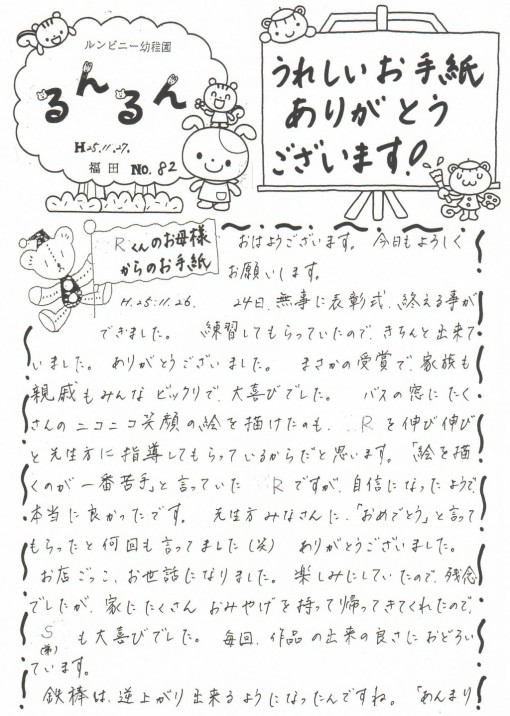 ルンビニー幼稚園
るんるん
H25.11.27.
福田 No.82
うれしいお手紙
ありがとう
ございます!
Rくんのお母様
からのお手紙
おはようございます。 今日もよろしく
お願いします。
H.25.11.26. 24日、無事に表彰式、終える事が
できました。 練習してもらっていたので、きちんと出来て
いました。 ありがとうございました。 まさかの受賞で、家族も
親戚もみんな ビックリで、大喜びでした。 バスの窓にたく
さんの ニコニコ笑顔の絵を描けたのも、 Rを伸び伸び
と先生方に指導してもらっているからだと思います。「絵を描
くのが一番苦手」と言っていた Rですが、自信になったようで、
本当に良かったです。 先生方みなさんに、「おめでとう」と言って
もらったと何回も言ってました(笑) ありがとうございました。
お店ごっこ、お世話になりました。 楽しみにしていたので、残念
でしたが、家にたくさん おみやげを持って帰ってきてくれたので、
S(弟)も大喜びでした。 毎回、作品の出来の良さにおどろい
ています。
鉄棒は、逆上がり出来るようになったんですね。 「あんまり